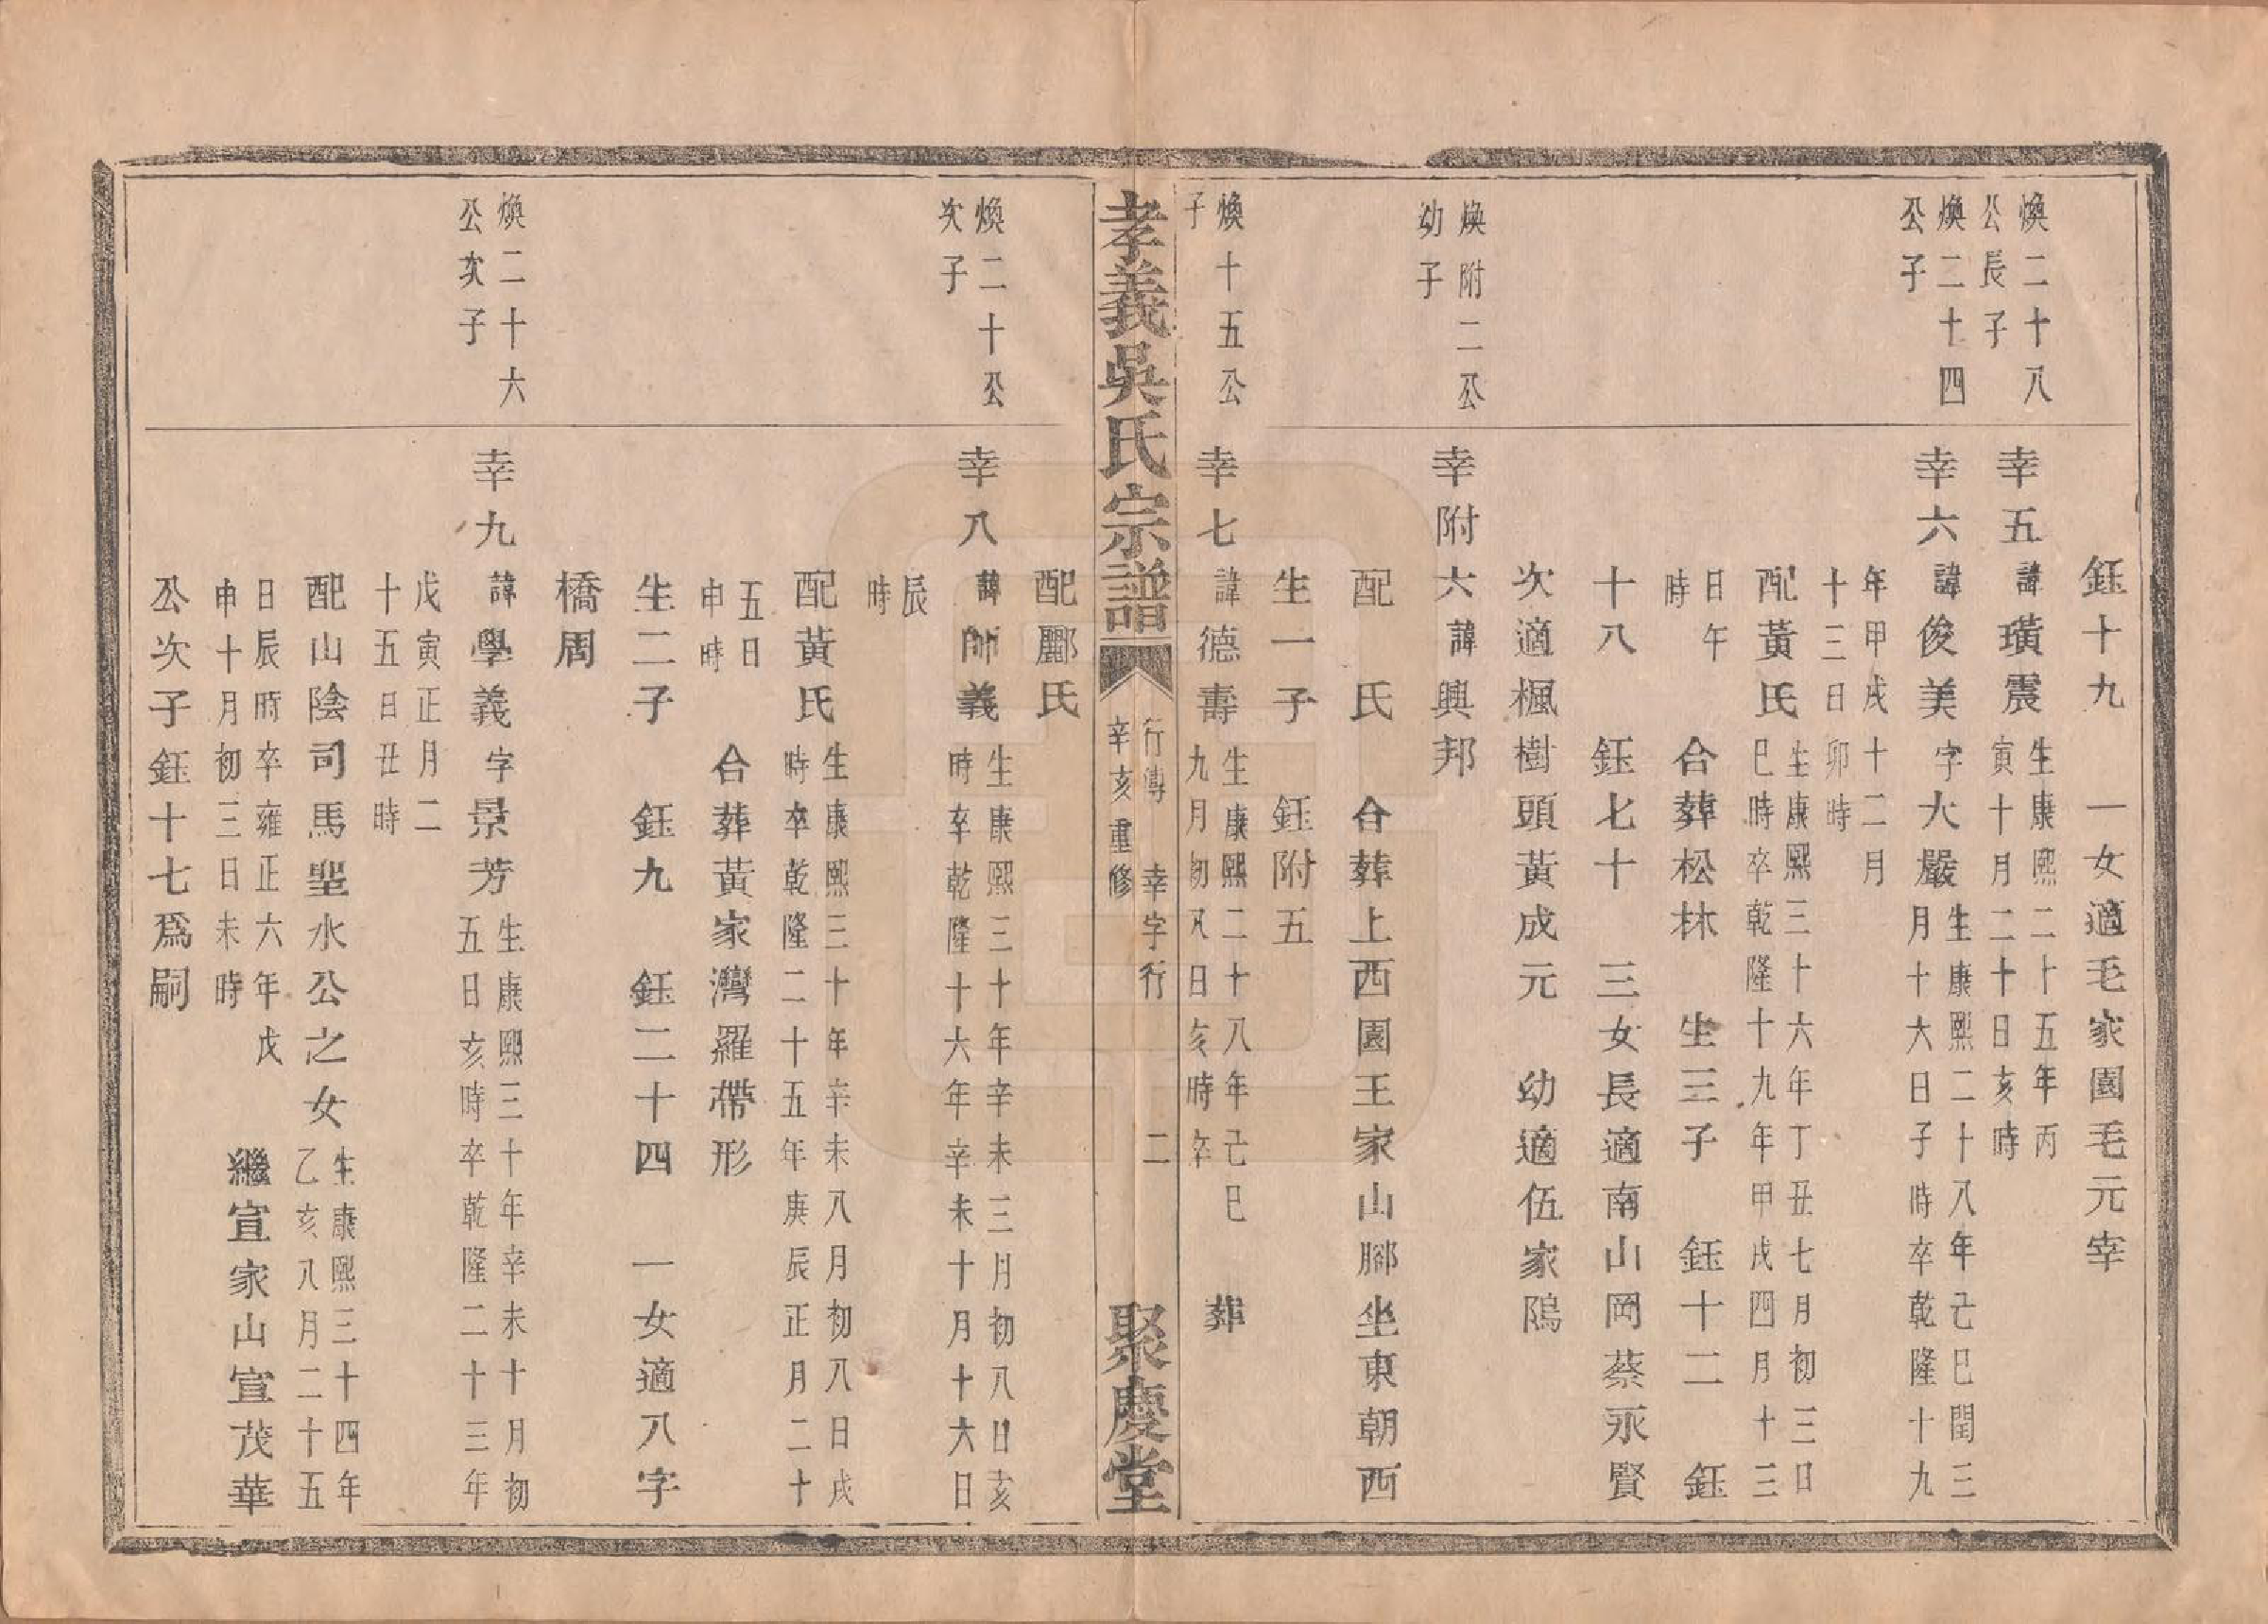 鈺十九　一女適毛家園毛元幸
煥二十八
公長子
幸五
諱
璜震
生康熙二十五年丙
寅十月二十日亥時
煥二十四
公子
幸六
諱
俊美
字
大嚴
生康熙二十八年己巳閏三
月十六日子時卒乾隆十九
年甲戌十二月
十三日卯時
配黃氏
生康熙三十六年丁丑七月初三日
巳時卒乾隆十九年甲戌四月十三
日午
時
合葬松林　生三子　鈺十二　鈺
十八　鈺七十　三女長適南山岡蔡永賢
次適楓樹頭黃成元　幼適伍家隖
煥附二公
幼子
幸附六
諱
興邦
配　氏　合葬上西園王家山腳坐東朝西
生一子　鈺附五
煥十五公
子
幸七
諱
德壽
生康熙二十八年己巳
九月初八日亥時卒
葬
孝義吳氏宗譜
行傳　幸字行　二
辛亥重修
聚慶堂
配酈氏
煥二十公
次子
幸八
諱
師義
生康熙三十年辛未三月初八日亥
時卒乾隆十六年辛未十月十六日
辰
時
配黃氏
生康熙三十年辛未八月初八日戌
時卒乾隆二十五年庚辰正月二十
五日
申時
合葬黃家灣羅帶形
生二子　鈺九　鈺二十四　一女適八字
橋周
煥二十六
公次子
幸九
諱
學義
字
景芳
生康熙三十年辛未十月初
五日亥時卒乾隆二十三年
戊寅正月二
十五日丑時
配山陰司馬聖水公之女
生康熙三十四年
乙亥八月二十五
日辰時卒雍正六年戊
申十月初三日未時
繼宣家山宣茂華
公次子鈺十七爲嗣